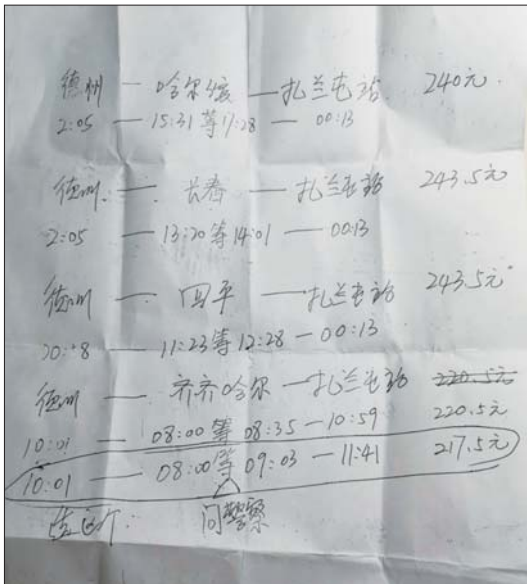 德州 — 哈尔滨 — 扎兰屯站 240元
2:05 — 15:31等17:28 — 00:13
德州 — 长春 — 扎兰屯站 243.5元
2:05 — 13:20等14:01 — 00:13
德州 — 四平 — 扎兰屯站 243.5元
20:18 — 11:23等12:28 — 00:13
德州 — 齐齐哈尔 — 扎兰屯站 220.5元
10:01 — 08:00等08:35 — 10:59 220.5元
10:01 — 08:00等09:03 — 11:41 217.5元
问警察